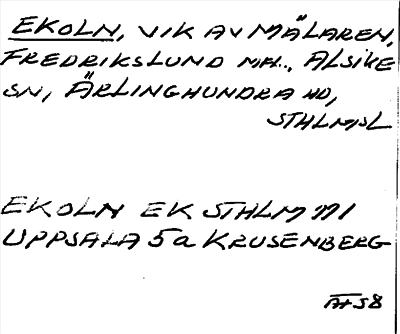 EKOLN, VIK AV MÄLAREN,
FREDRIKSLUND MH., ALSIKE
SN, ÄRLINGHUNDRA HD,
STHLMSL
EKOLN EK STHLM 111
UPPSALA 5a KRUSENBERG